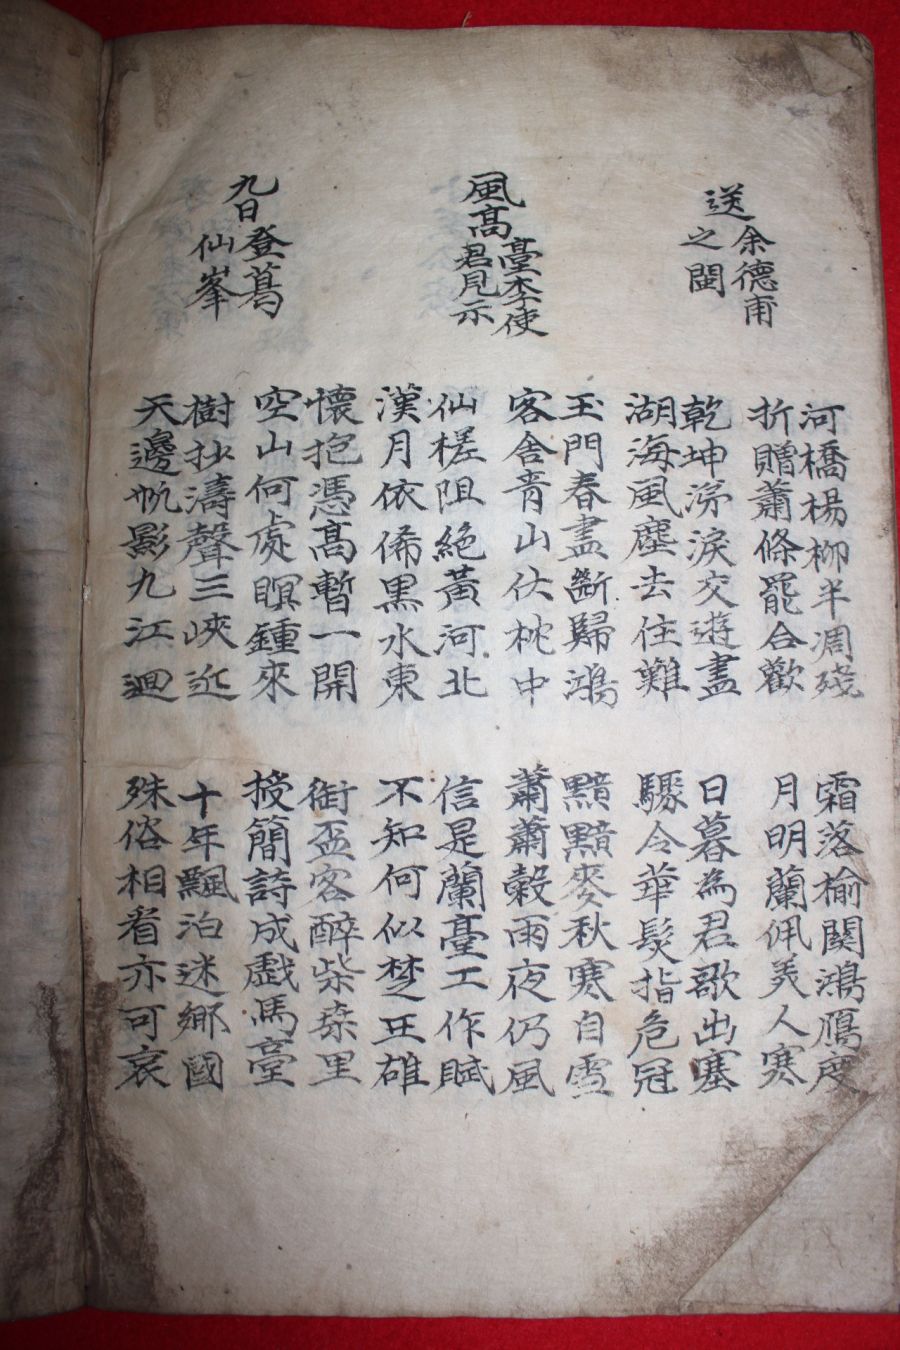 送余德甫
之閩
河橋楊柳半凋殘
折贈蕭條罷合歡
霜落榆關鴻鴈度
月明蘭佩美人寒
乾坤涕淚交遊盡
湖海風塵去住難
日暮為君歌出塞
驟令華髮指危冠
風高臺李使
君見示
玉門春盡斷歸鴻
客舍青山伏枕中
黯黯麥秋寒自雪
蕭蕭穀雨夜仍風
仙槎阻絕黃河北
漢月依俙黑水東
信是蘭臺工作賦
不知何似楚王雄
九日登葛
仙峯
懷抱憑高暫一開
空山何處瞑鍾來
銜盃客醉柴桑里
授簡詩成戲馬臺
樹抄濤聲三峽近
天邊帆影九江迴
十年飄泊迷鄉國
殊俗相看亦可哀